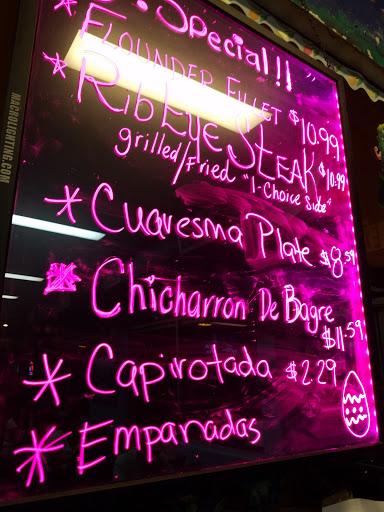 Special!!
FLOUNDER FILLET $10.99
* RibEye STEAK $10.99
grilled/Fried "1-Choice Side"
* Cuaresma Plate $8.59
* Chicharron De Bagre $11.59
* Capirotada $2.29
* Emparadas
MACROLIGHTING.COM